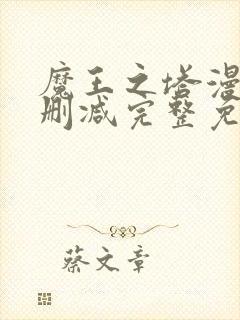 魔王之塔漫
删减完整免
蔡文章